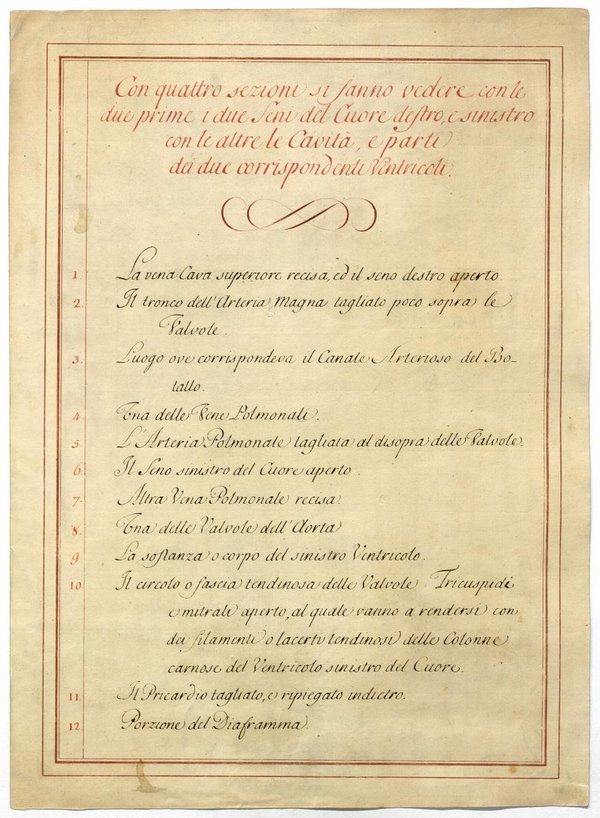 Con quattro sezioni si fanno vedere con le
due prime i due Seni del Cuore destro, e sinistro
con le altre le Cavità, e parti
dei due corrispondenti Ventricoli.
1. La vena Cava superiore recisa, ed il seno destro aperto.
2. Il tronco dell'Arteria Magna tagliato poco sopra le
Valvole.
3. Luogo ove corrispondeva il Canale Arterioso del Bo-
tallo.
4. Una delle Vene Polmonali.
5. L'Arteria Polmonale tagliata al disopra delle Valvole.
6. Il Seno sinistro del Cuore aperto.
7. Altra Vena Polmonale recisa.
8. Una delle Valvole dell'Aorta
9. La sostanza o corpo del sinistro Ventricolo.
10. Il circolo o fascia tendinosa delle Valvole Tricuspidi
e mitrali aperto, al quale vanno a rendersi con
dei filamenti o lacerti tendinosi delle Colonne
carnose del Ventricolo sinistro del Cuore.
11. Il Pricardio tagliato, e ripiegato indietro.
12. Porzione del Diaframma.